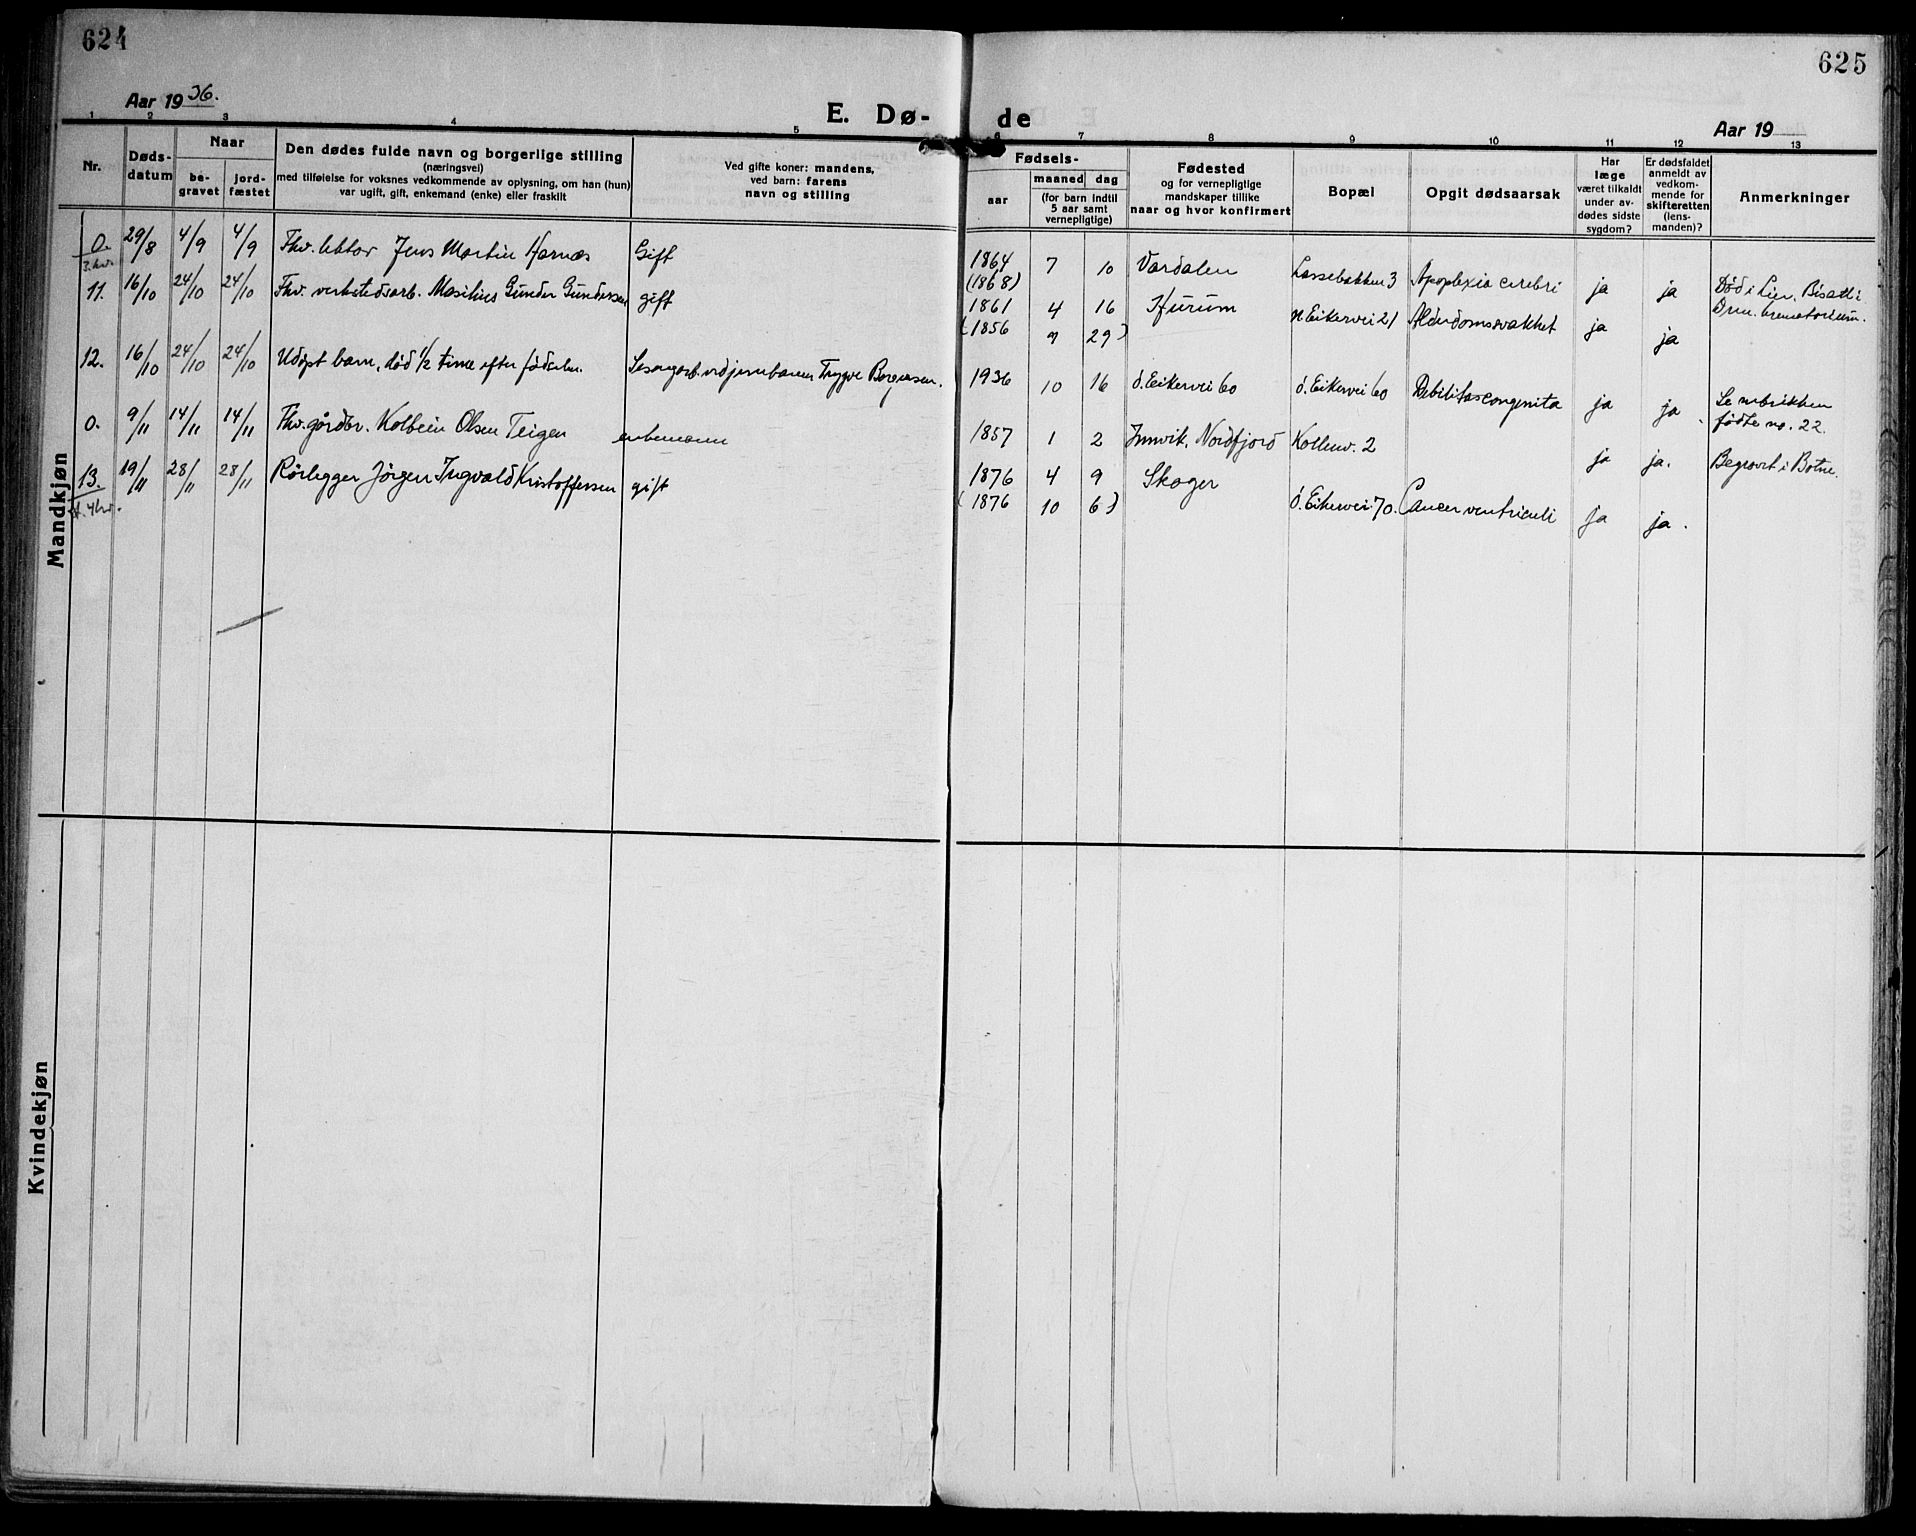 624
625
Aar 1936.
E. Dø-
de
Aar 19
1 2 3 4 5 6 7 8 9 10 11 12 13
Nr.
Døds-
datum
Naar
be-
gravet
jord-
fæstet
Den dødes fulde navn og borgerlige stilling
(næringsvei)
med tilføielse for voksnes vedkommende av oplysning, om han (hun)
var ugift, gift, enkemand (enke) eller fraskilt
Ved gifte koner: mandens,
ved barn: farens
navn og stilling
Fødsels-
aar
maaned dag
(for barn indtil
5 aar samt
vernepligtige)
Fødested
og for vernepligtige
mandskaper tillike
naar og hvor konfirmert
Bopæl
Opgit dødsaarsak
Har
læge
været tilkaldt
under av-
dødes sidste
sygdom?
Er dødsfaldet
anmeldt av
vedkom-
mende for
skifteretten
(lens-
manden)?
Anmerkninger
Mandkjøn
0. 29/8 4/9 4/9 Fhv. lektor Jens Martin Harnæs Gift 1864 7 10 Vardalen Lassebakken 3 Apoplexia cerebri ja ja Død i Lier. Bisatt i
3. kv.
(1868) Drm. krematorium.
11. 16/10 24/10 24/10 Fhv. verkstedsarb. Masilius Gunder Gundersen gift 1861 4 16 Hurum n Eikervei 21 Alderdomssvakhet ja ja
(1856 9 29)
12. 16/10 24/10 24/10 Udøpt barn, død 1/2 time efter fødselen. Sesongarb. ved jernbanen Trygve Borgersen. 1936 10 16 ø. Eikervei 60 ø. Eikervei 60 Debilitas congenita ja ja. Se rubrikken
fødte no. 22.
0. 9/11 14/11 14/11 Fhv. gårdbr. Kolbein Olsen Teigen enkemann 1857 1 2 Innvik, Nordfjord Kollenv. 2 ja ja. Begravet i Botne.
13. 19/11 28/11 28/11 Rørlegger Jørgen Ingvald Kristoffersen gift 1876 4 9 Skoger ø. Eikervei 70. Cancer ventriculi ja ja.
4 kv.
(1876 10 6)
Kvindekjøn